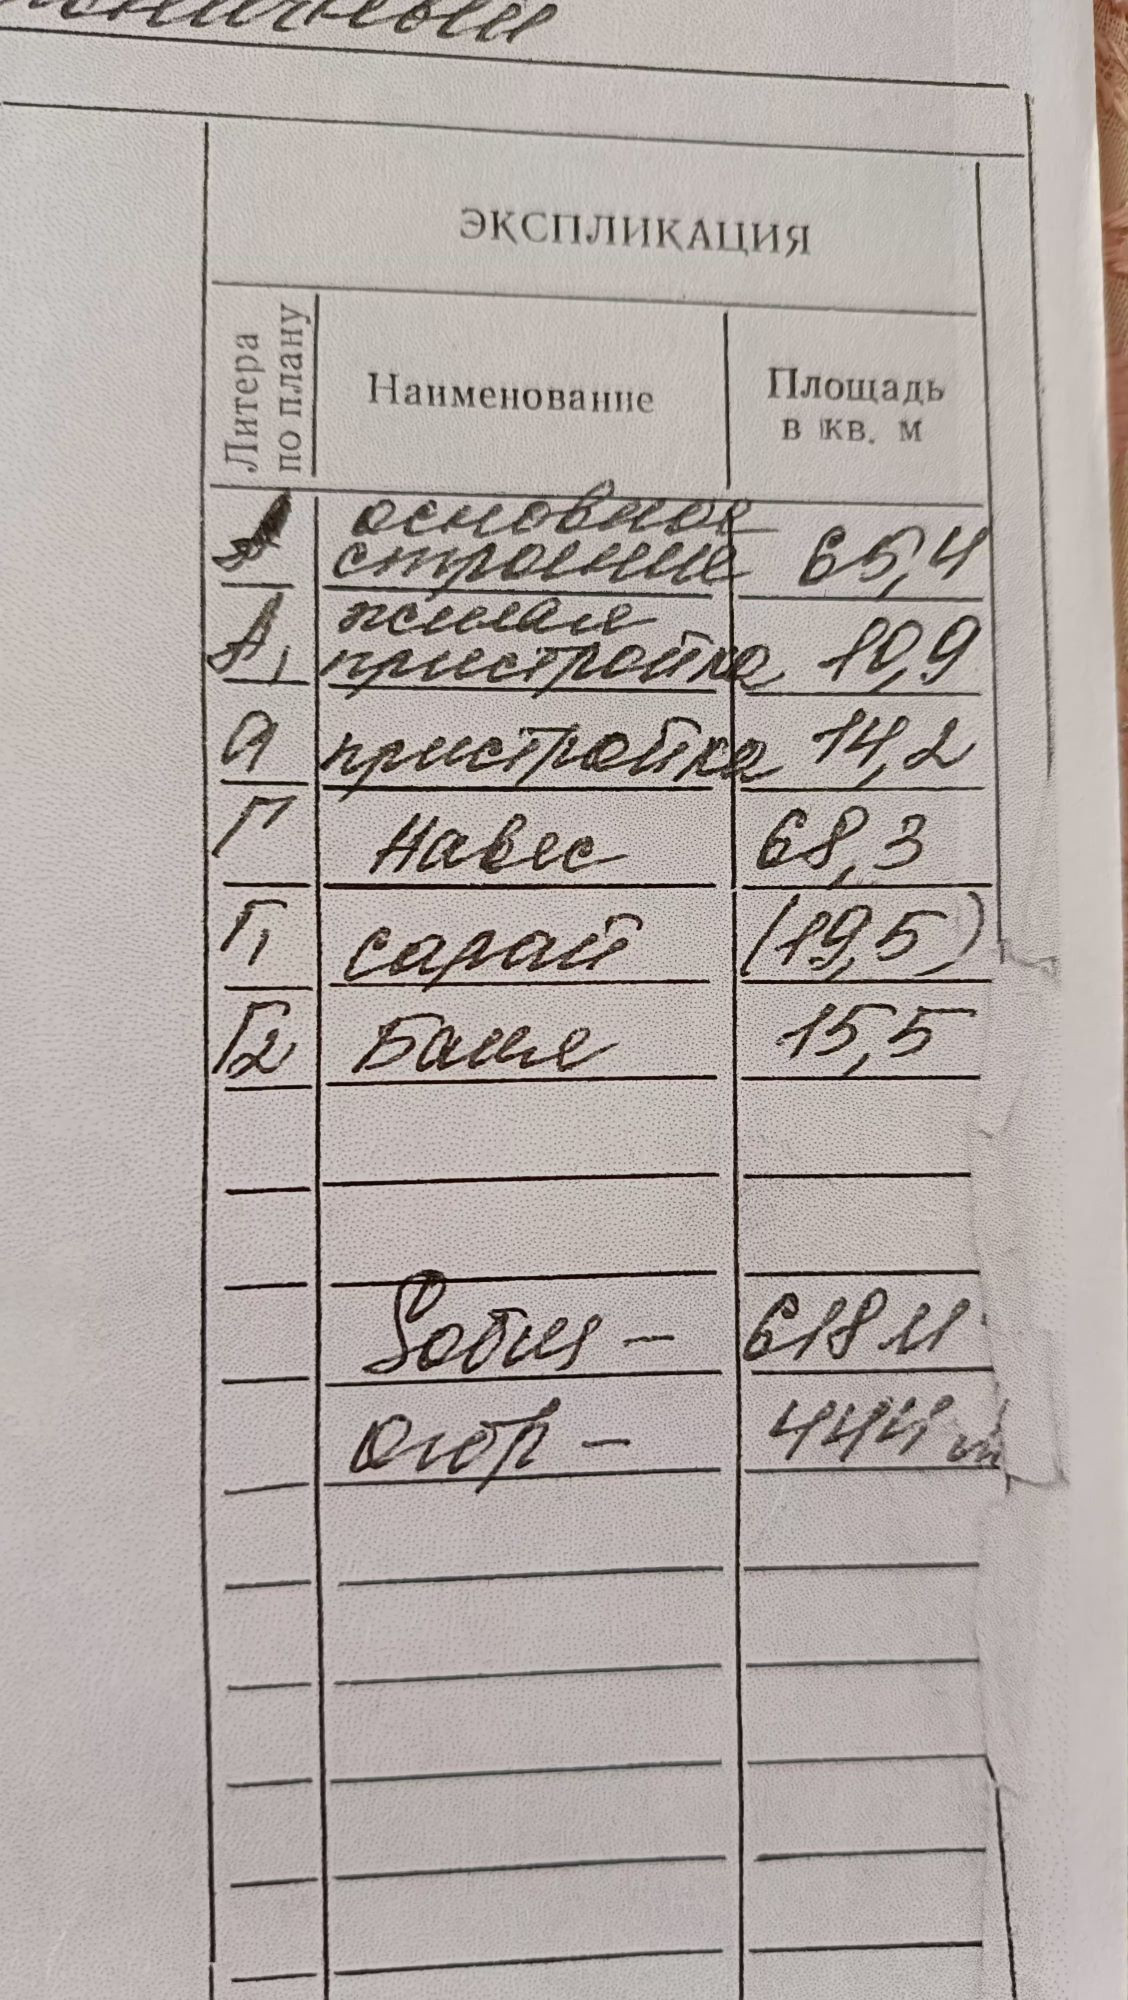 ЭКСПЛИКАЦИЯ
Литера
по плану
Наименование
Площадь
в кв. м
А основное
строение 65,4
А1 жилая
пристройка 10,9
а пристройка 14,2
Г Навес 68,3
Г1 сарай (19,5)
Г2 Баня 15,5
Sобщ – 618 м
огор – 444 м